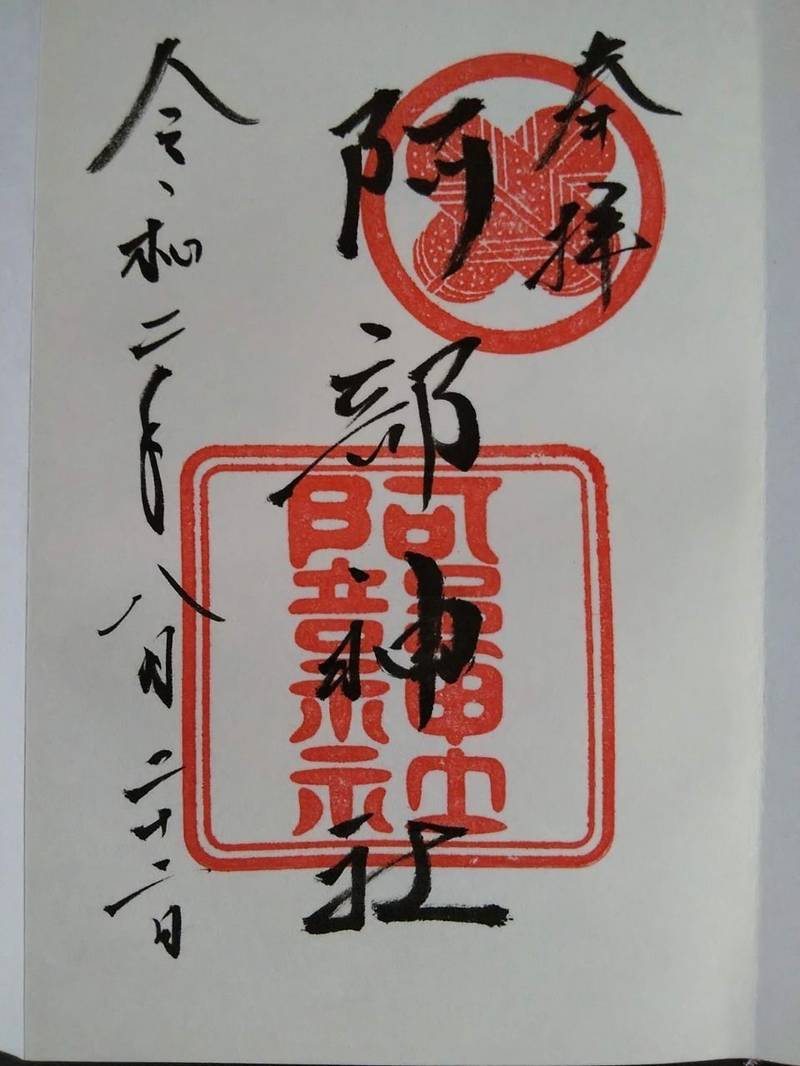 奉拝
阿部神社
阿部神社
令和二年八月二十二日